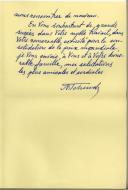 nous rencontrer de nouveau.
En Vous souhaitant de grands
succès dans Votre noble travail, dans
Votre honorable activité pour la con-
solidation de la paix mondiale,
je Vous envoie, à Vous et à Votre hono-
rable famille, mes salutations
les plus amicales et cordiales